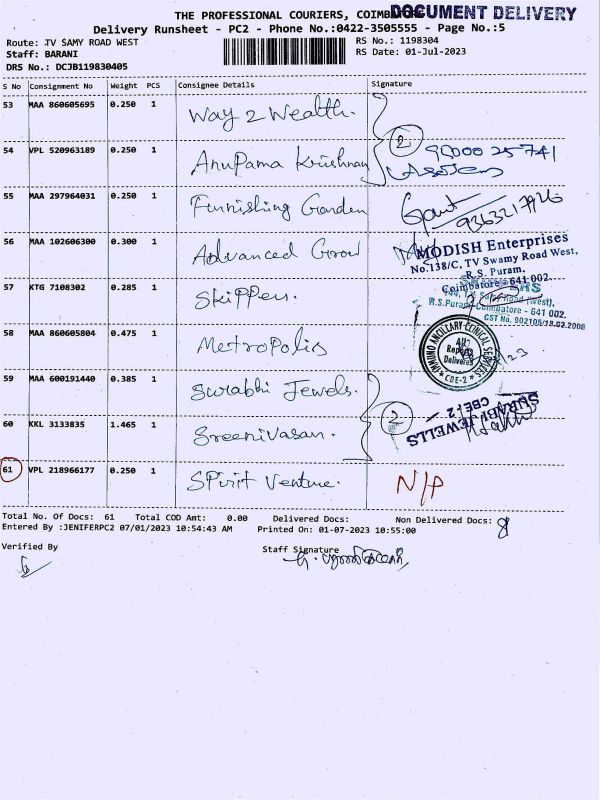 THE PROFESSIONAL COURIERS, COIMB
DOCUMENT DELIVERY
Delivery Runsheet - PC2 - Phone No.:0422-3505555 - Page No.:5
Route: TV SAMY ROAD WEST
RS No.: 1198304
Staff: BARANI
RS Date: 01-Jul-2023
DRS No.: DCJB119830405
S No Consignment No Weight PCS Consignee Details Signature
53 MAA 860605695 0.250 1 Way 2 Wealth.
54 VPL 520963189 0.250 1 Anupama Krishnan 2
55 MAA 297964031 0.250 1 Furnishing Garden 9363217926
56 MAA 102606300 0.300 1 Advanced Grow
MODISH Enterprises
No.138/C, TV Swamy Road West,
R.S. Puram,
Coimbatore - 641 002.
57 KTG 7108302 0.285 1 Skipper.
R.S.Puram, Coimbatore - 641 002.
CST No. 902105/18.02.2008
58 MAA 860605804 0.475 1 Metropolis
IMMUNO ANCILLARY CLINICAL SERVICES
All
Reports
Delivered
CBE-2
59 MAA 600191440 0.385 1 Surabhi Jewels.
2
SURABI JEWELLS
CBE-2
60 KKL 3133835 1.465 1 Sreenivasan.
61 VPL 218966177 0.250 1 Spirit Venture. N/P
Total No. Of Docs: 61 Total COD Amt: 0.00 Delivered Docs: Non Delivered Docs: 8
Entered By :JENIFERPC2 07/01/2023 10:54:43 AM Printed On: 01-07-2023 10:55:00
Verified By
Staff Signature